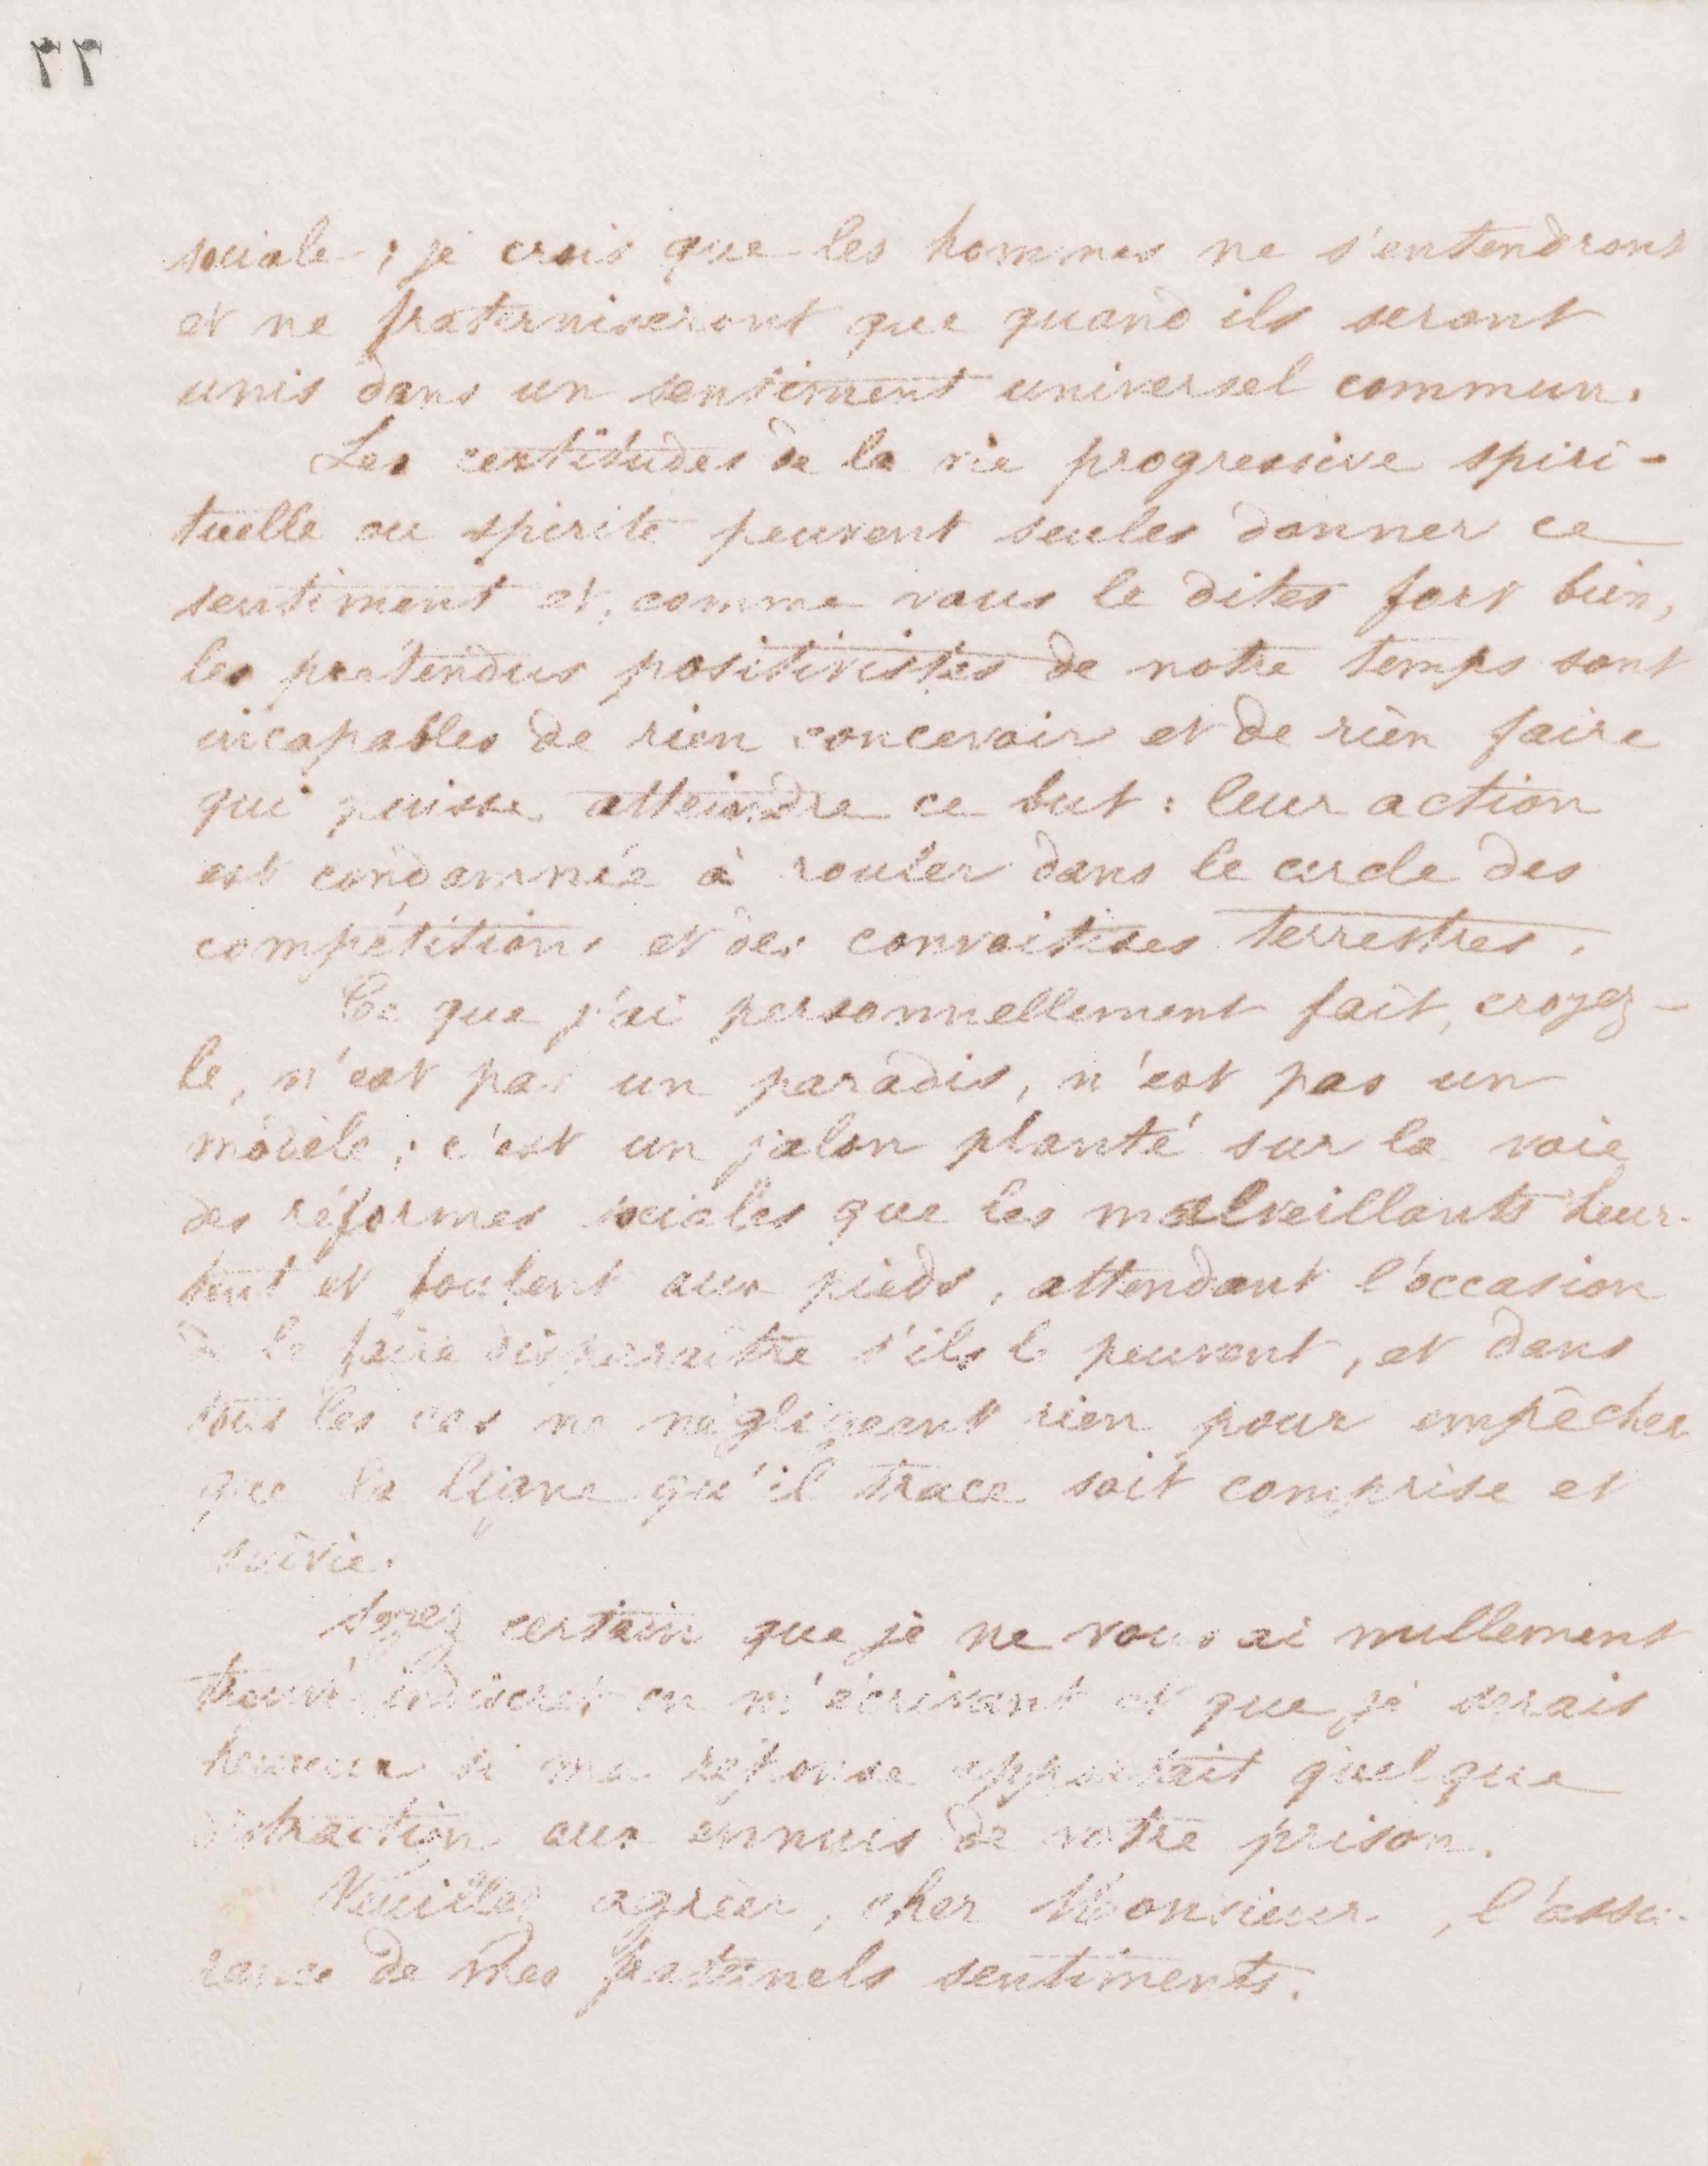 77
sociale ; je crois que les hommes ne s'entendront
et ne fraterniseront que quand ils seront
unis dans un sentiment universel commun.
Les certitudes de la vie progressive spiri-
tuelle ou spirite peuvent seules donner ce
sentiment et, comme vous le dites fort bien,
les prétendus positivistes de notre temps sont
incapables de rien concevoir et de rien faire
qui puisse atteindre ce but : leur action
est condamnée à rouler dans le cercle des
compétitions et des convoitises terrestres.
Ce que j'ai personnellement fait, croyez-
le, n'est pas un paradis, n'est pas un
modèle ; c'est un jalon planté sur la voie
des réformes sociales que les malveillants heur-
tent et foulent aux pieds, attendant l'occasion
de le faire disparaître s'ils le peuvent, et dans
tous les cas ne négligeant rien pour empêcher
que la ligne qu'il trace soit comprise et
suivie.
Soyez certain que je ne vous ai nullement
trouvé indiscret en m'écrivant et que je serais
heureux si ma réponse apportait quelque
distraction aux ennuis de votre prison.
Veuillez agréer, cher Monsieur, l'assu-
rance de mes fraternels sentiments.